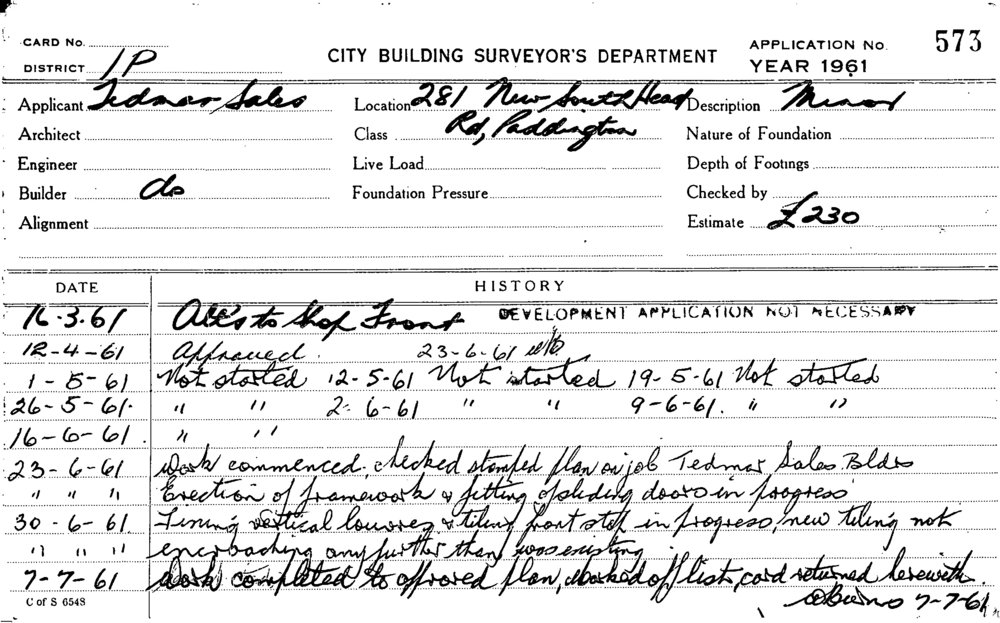 CARD No. CITY BUILDING SURVEYOR'S DEPARTMENT APPLICATION No. 573
DISTRICT 1P YEAR 1961
Applicant Tedmar Sales Location 281 New South Head Description Minor
Architect Class Rd, Paddington Nature of Foundation
Engineer Live Load Depth of Footings
Builder do Foundation Pressure Checked by
Alignment Estimate £230
DATE HISTORY
16.3.61 Alt's to Shop Front DEVELOPMENT APPLICATION NOT NECESSARY
12-4-61 Approved. 23-6-61
1-5-61 Not started 12-5-61 Not started 19-5-61 Not started
26-5-61. " " 2-6-61 " " 9-6-61. " "
16-6-61. " "
23-6-61 Work commenced. checked stamped plan on job Tedmar Sales Bldrs
" " " Erection of framework & fitting of sliding doors in progress
30-6-61. Fixing vertical louvres & tiling front step in progress, new tiling not
" " " encroaching any further than was existing
7-7-61 Work completed to approved plan, marked off list, card returned herewith.
C of S 6548 7-7-61